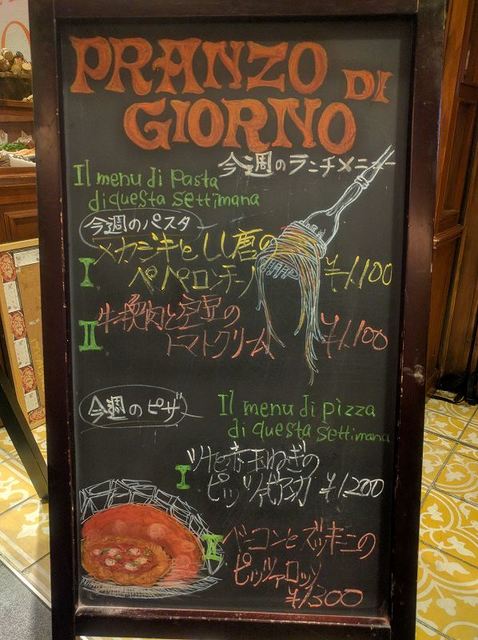 PRANZO DI
GIORNO
今週のランチメニュー
Il menu di pasta
di questa settimana
今週のパスタ
I メカジキとしし唐の
ペペロンチーノ ¥1,100
II 牛挽肉と空豆の
トマトクリーム ¥1,100
今週のピザ
Il menu di pizza
di questa settimana
I ツナと赤玉ねぎの
ピッツァ ¥1200
II ベーコンとズッキーニの
ピッツァロッソ
¥1300